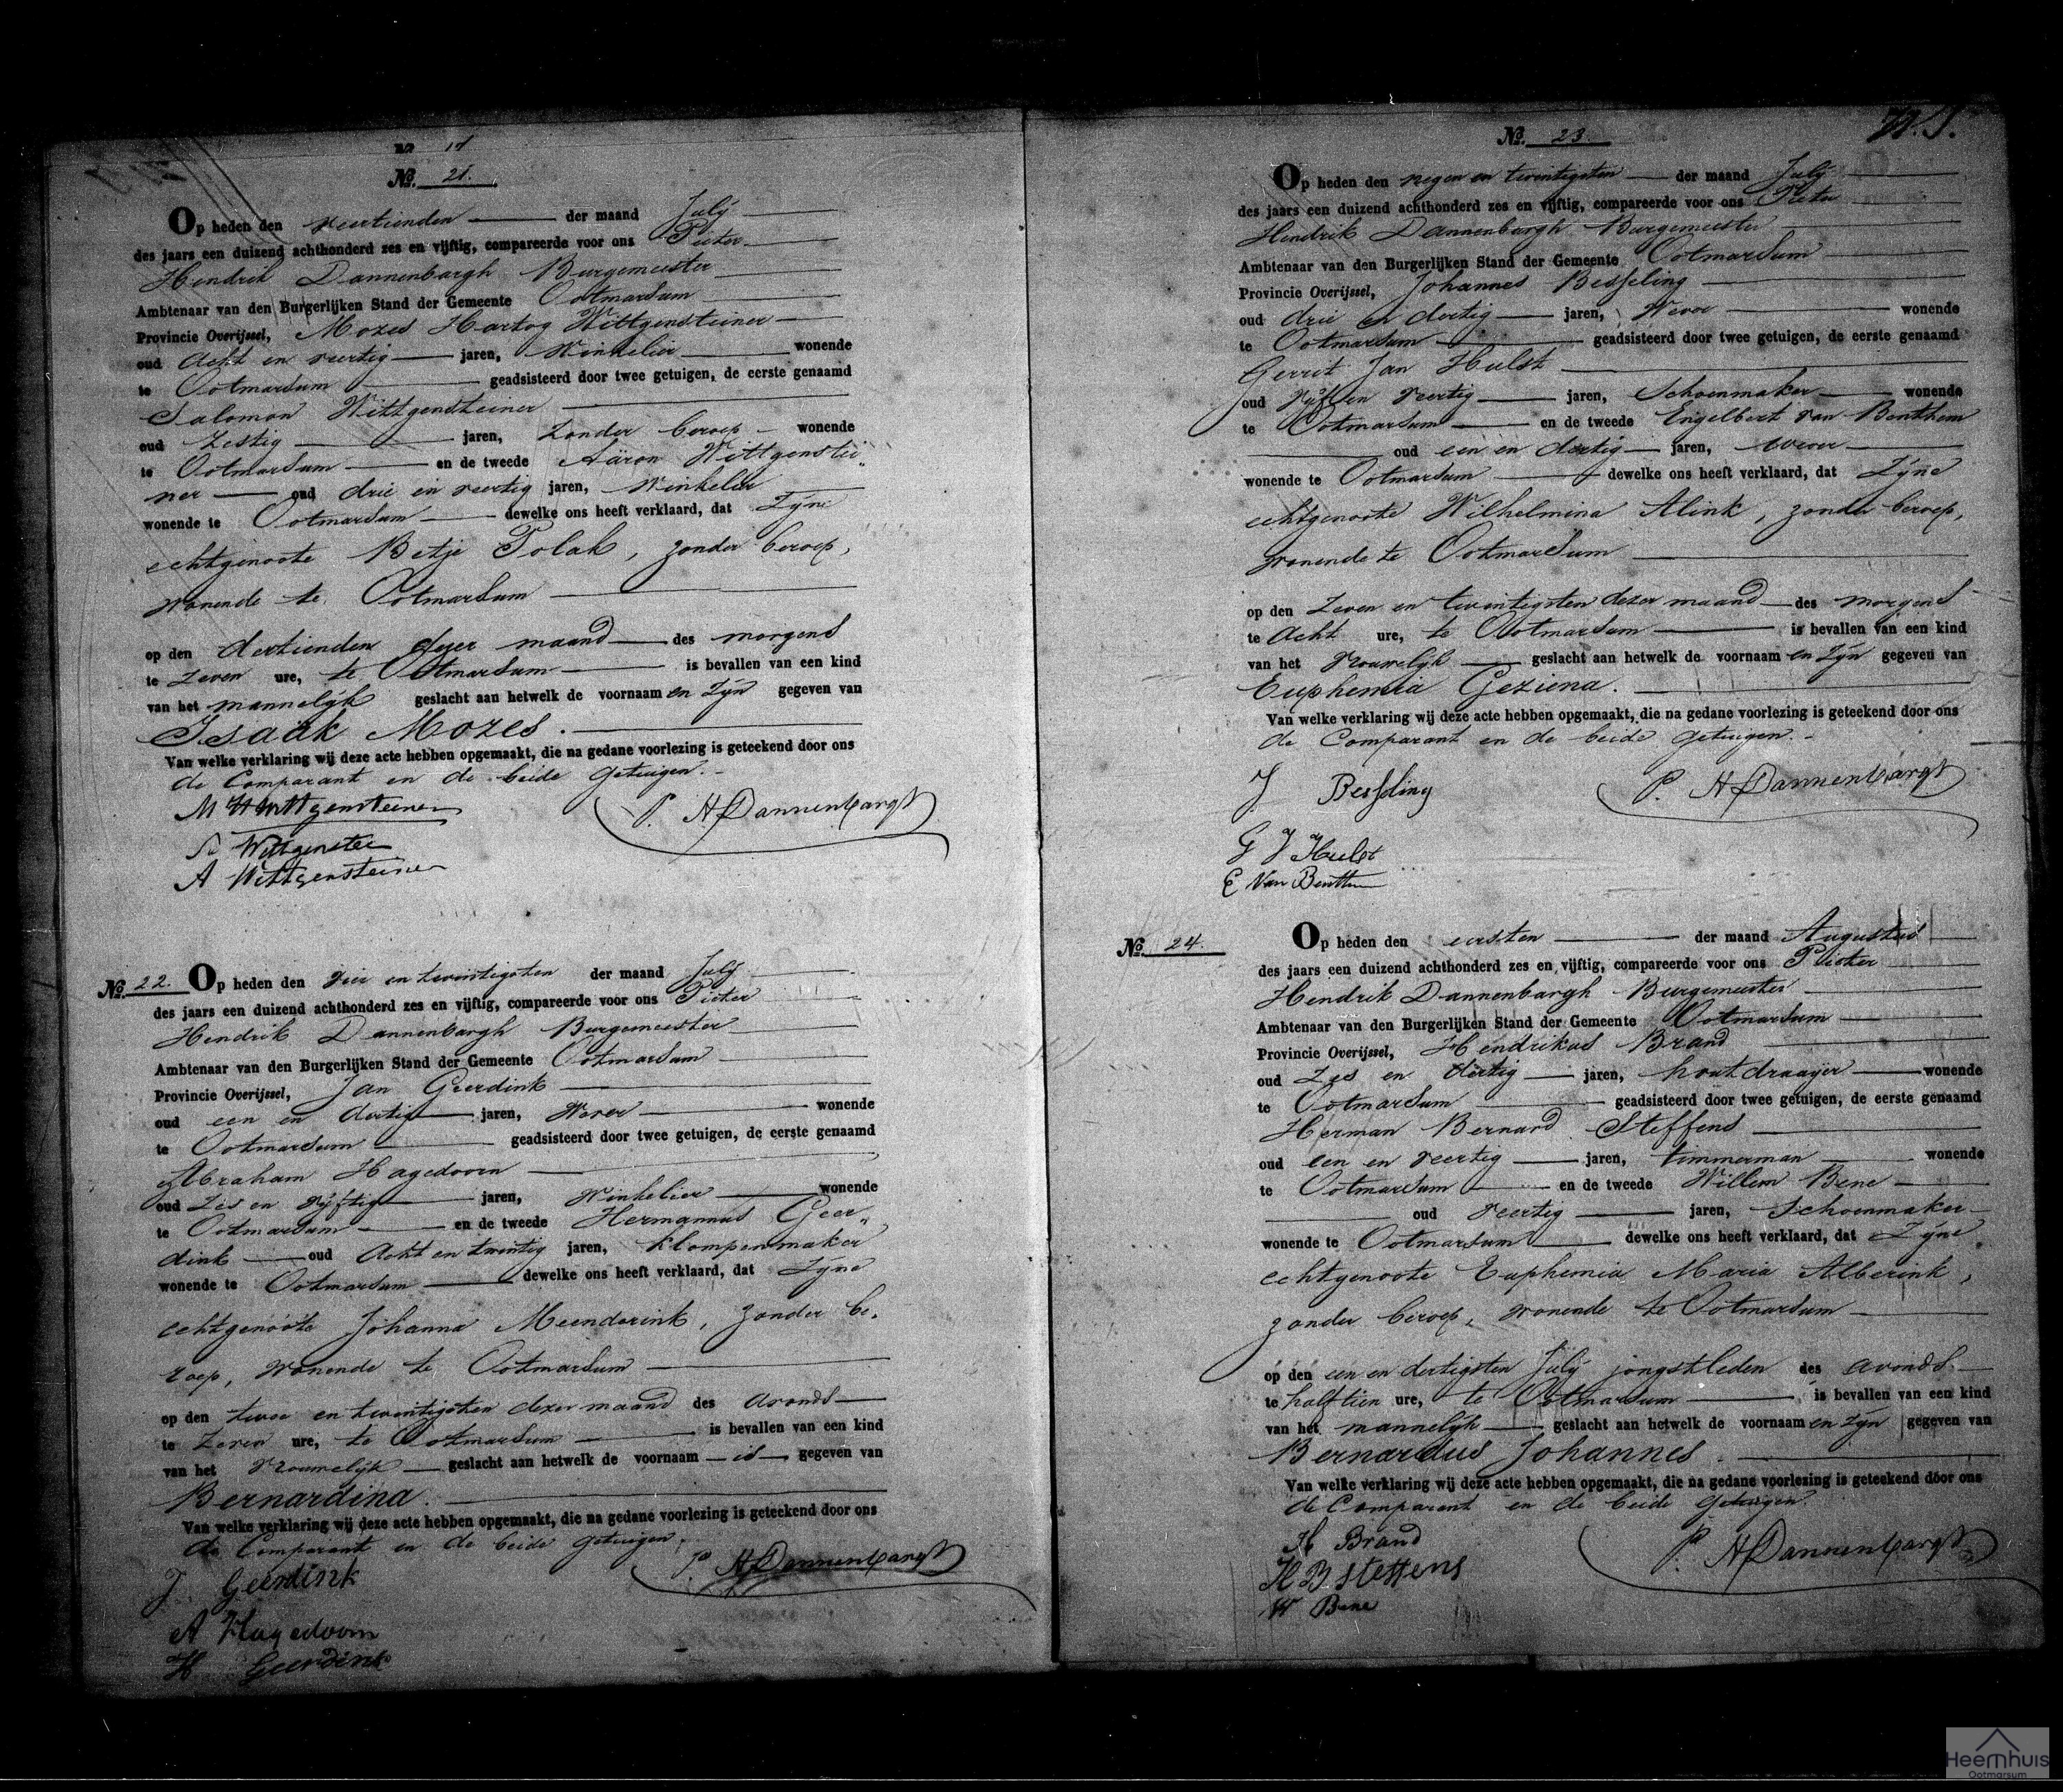 No. 21.
Op heden den veertienden der maand July
des jaars een duizend achthonderd zes en vijftig, compareerde voor ons Pieter
Hendrik Dannenbargh Burgemeester
Ambtenaar van den Burgerlijken Stand der Gemeente Ootmarsum
Provincie Overijssel, Mozes Hartog Wittgensteiner
oud acht en veertig jaren, Winkelier wonende
te Ootmarsum geadsisteerd door twee getuigen, de eerste genaamd
Salomon Wittgensteiner
oud Zestig jaren, Zonder beroep wonende
te Ootmarsum en de tweede Aäron Wittgenstei„
ner oud drie en veertig jaren, Winkelier
wonende te Ootmarsum dewelke ons heeft verklaard, dat Zyne
echtgenoote Betje Polak, zonder beroep,
wonende te Ootmarsum
op den dertienden dezer maand des morgens
te Zeven ure, te Ootmarsum is bevallen van een kind
van het mannelyk geslacht aan hetwelk de voornaam en Zyn gegeven van
Isaäk Mozes.
Van welke verklaring wij deze acte hebben opgemaakt, die na gedane voorlezing is geteekend door ons
de Comparant en de beide getuigen.
M H Wittgensteiner
P. H Dannenbargh
S Wittgenstei
A Wittgensteiner
No. 22. Op heden den vier en twintigsten der maand July
des jaars een duizend achthonderd zes en vijftig, compareerde voor ons Pieter
Hendrik Dannenbargh Burgemeester
Ambtenaar van den Burgerlijken Stand der Gemeente Ootmarsum
Provincie Overijssel, Jan Geerdink
oud een en dertig jaren, Wever wonende
te Ootmarsum geadsisteerd door twee getuigen, de eerste genaamd
Abraham Hagedoorn
oud Zes en vyftig jaren, Winkelier wonende
te Ootmarsum en de tweede Hermannus Geer„
dink oud acht en twintig jaren, Klompenmaker
wonende te Ootmarsum dewelke ons heeft verklaard, dat Zyne
echtgenoote Johanna Meenderink, zonder be„
roep, wonende te Ootmarsum
op den twee en twintigsten dezer maand des avonds
te Zeven ure, te Ootmarsum is bevallen van een kind
van het vrouwelyk geslacht aan hetwelk de voornaam is gegeven van
Bernardina.
Van welke verklaring wij deze acte hebben opgemaakt, die na gedane voorlezing is geteekend door ons
de Comparant en de beide getuigen.
J Geerdink
P. H Dannenbargh
A Hagedoorn
H Geerdink
No. 23.
Op heden den negen en twintigsten der maand July
des jaars een duizend achthonderd zes en vijftig, compareerde voor ons Pieter
Hendrik Dannenbargh Burgemeester
Ambtenaar van den Burgerlijken Stand der Gemeente Ootmarsum
Provincie Overijssel, Johannes Besseling
oud drie en dertig jaren, Wever wonende
te Ootmarsum geadsisteerd door twee getuigen, de eerste genaamd
Gerrit Jan Hulst
oud vyf en veertig jaren, Schoenmaker wonende
te Ootmarsum en de tweede Engelbert van Benthem
oud een en dertig jaren, wever
wonende te Ootmarsum dewelke ons heeft verklaard, dat Zyne
echtgenoote Wilhelmina Alink, zonder beroep,
wonende te Ootmarsum
op den Zeven en twintigsten dezer maand des morgens
te acht ure, te Ootmarsum is bevallen van een kind
van het vrouwelyk geslacht aan hetwelk de voornaam en Zyn gegeven van
Euphemia Geziena.
Van welke verklaring wij deze acte hebben opgemaakt, die na gedane voorlezing is geteekend door ons
de Comparant en de beide getuigen.
J. Besseling
P. H Dannenbargh
G J Hulst
E Van Benthem
No. 24. Op heden den eersten der maand Augustus
des jaars een duizend achthonderd zes en vijftig, compareerde voor ons Pieter
Hendrik Dannenbargh Burgemeester
Ambtenaar van den Burgerlijken Stand der Gemeente Ootmarsum
Provincie Overijssel, Hendrikus Brand
oud Zes en dertig jaren, houtdraayer wonende
te Ootmarsum geadsisteerd door twee getuigen, de eerste genaamd
Herman Bernard Steffens
oud een en veertig jaren, timmerman wonende
te Ootmarsum en de tweede Willem Bene
oud veertig jaren, Schoenmaker
wonende te Ootmarsum dewelke ons heeft verklaard, dat Zyne
echtgenoote Euphemia Maria Alberink,
zonder beroep, wonende te Ootmarsum
op den een en dertigsten July jongstleden des avonds
te half tien ure, te Ootmarsum is bevallen van een kind
van het mannelyk geslacht aan hetwelk de voornaam en Zyn gegeven van
Bernardus Johannes.
Van welke verklaring wij deze acte hebben opgemaakt, die na gedane voorlezing is geteekend door ons
de Comparant en de beide getuigen.
H Brand
P. H Dannenbargh
H B Steffens
W Bene
Heemhuis
Ootmarsum